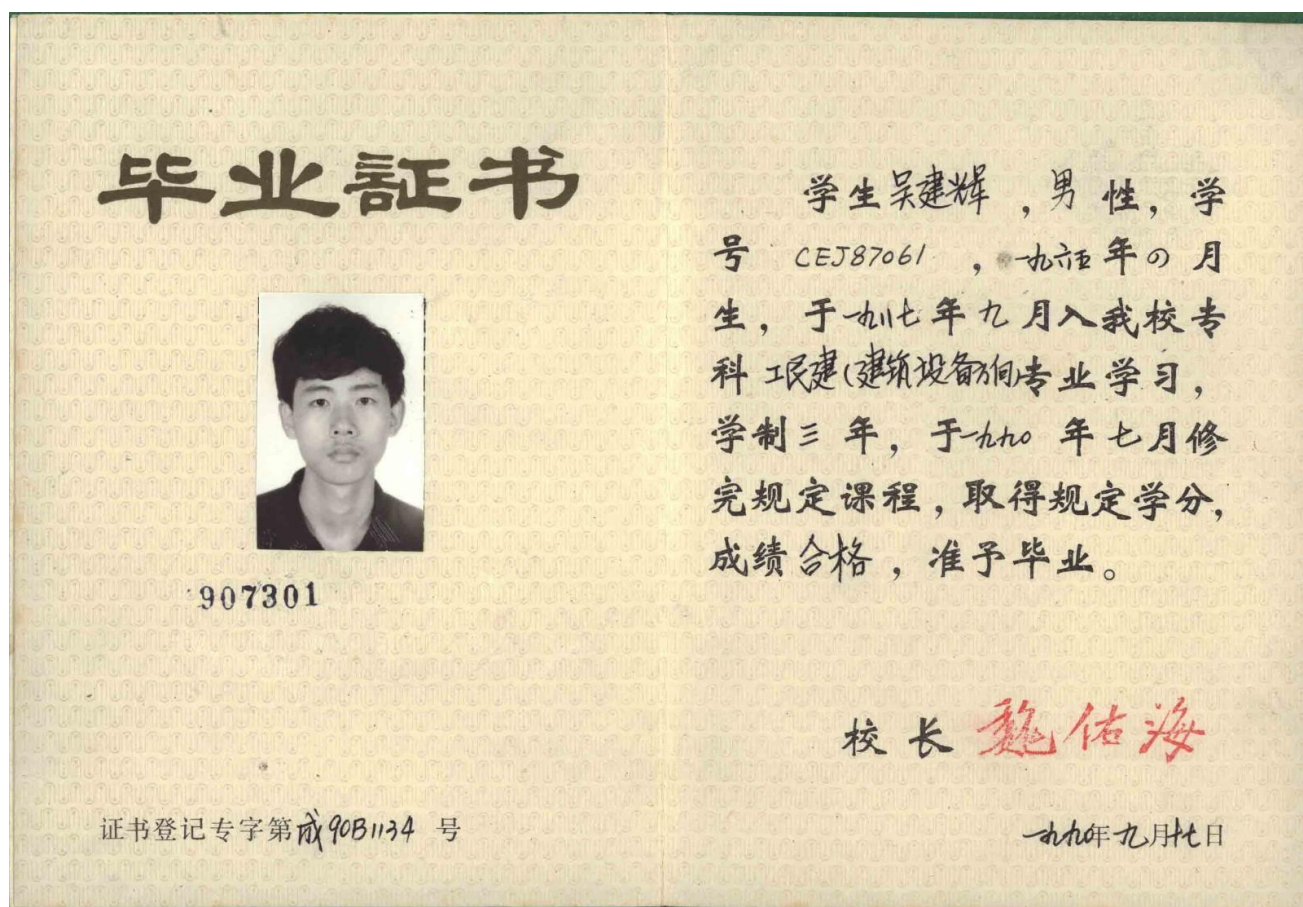 毕业証书
907301
证书登记专字第成90B1134 号
学生吴建辉，男性，学
号 CEJ87061，一九六五年四月
生，于一九八七年九月入我校专
科工民建(建筑设备方向)专业学习，
学制三年，于一九九〇年七月修
完规定课程，取得规定学分，
成绩合格，准予毕业。
校长 魏佑海
一九九〇年九月十七日